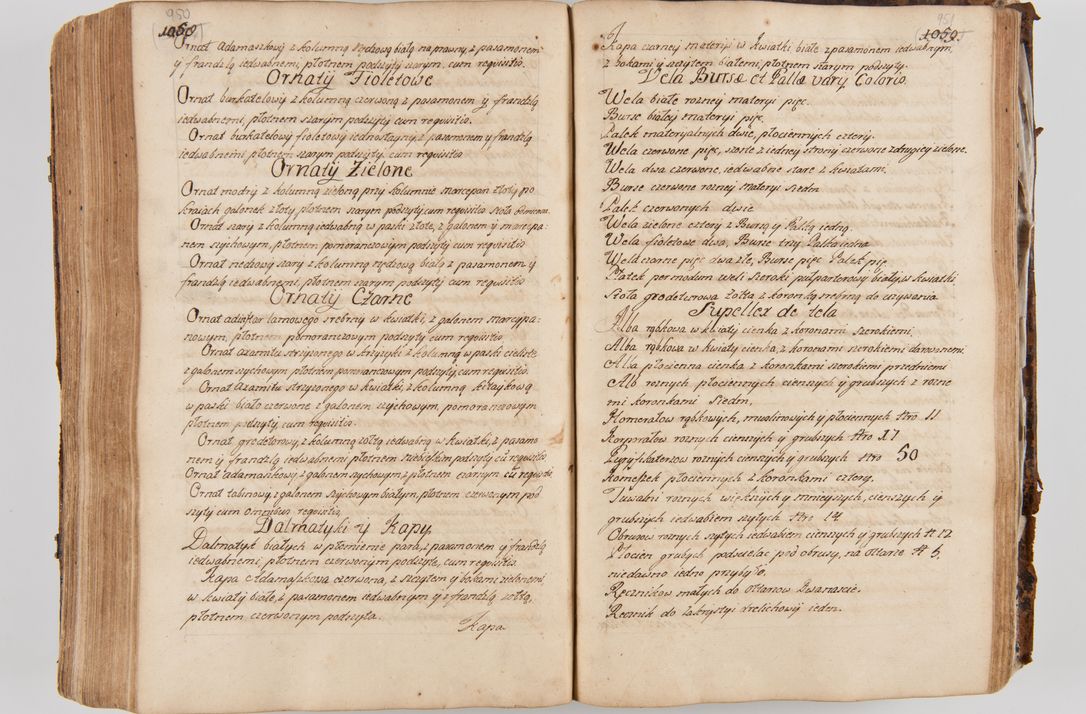 950
1050
Ornat adamaszkowy z kolumną rządzową białą naprawny, z pasamonem
y frandzlą iedwabnemi, płotnem podszyty szarym, cum requisitis.
Ornaty Fioletowe
Ornat burkatelowy z kolumną czerwoną z pasamonem y frandzlą
iedwabnemi, płotnem szarym podszyty cum requisitis.
Ornat burkatelowy fioletowy iednostayny z pasamonem y frandzlą
iedwabnemi płotnem szarym podszyty cum requisitis
Ornaty Zielone
Ornat modry z kolumną zieloną przy kolumnie marcypan złoty po
kraiach galonek złoty płotnem szarym podszyty cum requisitis stoła
Ornat szary z kolumną iedwabną w paski złote, z galonem y marcypa=
nem szychowym, płotnem pomoranczowym podszyty cum requisitis
Ornat szary z kolumną białą z pasamonem y
frandzlą iedwabnemi, płotnem szarym podszyty cum requisitis
Ornaty Czarne
Ornat lamowego srebrny w kwiatki, z galonem marcypa=
nowym, płotnem pomoranczowym podszyty cum requisitis
Ornat axamitu strzyżonego w krzyżyki z kolumną w paski cieliste
z galonem szychowym płotnem pomoranczowym podszyty cum requisitis.
Ornat axamitu strzyżonego w kwiatki, z kolumną kitaykową
w paski biało czerwone z galonem szychowym, pomoranczowym
płotnem podszyty, cum requisitis.
Ornat grodetorowy, z kolumną żołtą iedwabną w kwiatki, z pasamo
nem y frandzlą iedwabnemi płotnem niebieskim podszyty cū requisitis
Ornat adamaszkowy z galonem szychowym z płotnem czarnym cū requisitis
Ornat tabinowy z galonem szychowym białym, płotnem czerwonym pod
szyty cum omnibus requisitis.
Dalmatyki y Kapy
Dalmatyk białych w płomienie para, z pasamonem y frandzlą
iedwabnemi, płotnem czerwonym podszyte, cum requisitis.
Kapa adamaszkowa czerwona, z szczytem y bokami zielonemi,
w kwiaty białe, z pasamonem iedwabnym y z frandzlą żołtą,
płotnem czerwonym podszyta.
Kapa
951
1050
Kapa czarney materyi w kwiatki białe z pasamonem iedwabnym,
z bokami y szczytem białemi, płotnem szarym podszyty.
Vela Bursæ et Pallæ vary Coloris.
Wela białe rozney materyi pięc.
Burse białey materyi pięc.
Palek materyalnych dwie, płociennych cztery.
Wela czerwone pięc, szoste z iedney strony czerwone z drugiey zielone.
Wela dwa czerwone, iedwabne stare z kwiatami,
Burse czerwone rozney materyi siedm
Palek czerwonych dwie
Wela zielone cztery z Bursą y Palką iedną.
Wela fioletowe dwa, Burse trzy Palka iedna
Wela czarne pięc dwa złe, Burse pięc Palek pięc
Płatek per modum weli szeroki pułparterowy biały w kwiatki
Stoła grodetorowa żołta z koronką srebrną do używania
Supellex de tela
Alba rąbkowa w kwiaty cienka z koronami szerokiemi,
Alba rąbkowa w kwiaty cienka, z koronami szerokiemi darownemi
Alba płocienna cienka z koronkami szerokiemi przedniemi
Alb roznych, płociennych cienszych y grubszych z rozne
mi koronkami siedm,
Humerałow rąbkowych, muslinowych y płociennych Nro 11
Korporałow roznych cienszych y grubszych Nro 17
Puryfikaterzow roznych cienszych y grubszych Nro 50
Komeszek płociennych z koronkami cztery.
Tuwalni roznych większych y mnieyszych, cienszych y
grubszych iedwabiem szytych Nro 14
Obrusow roznych szytych iedwabiem cienszych y grubszych N 12
Płocien grubych podscielac pod obrusy, na ołtarze N 6,
niedawno iedno przybyło,
Ręcznikow małych do ołtarzow dwanascie.
Ręcznik do Zakrystyi drelichowy ieden.